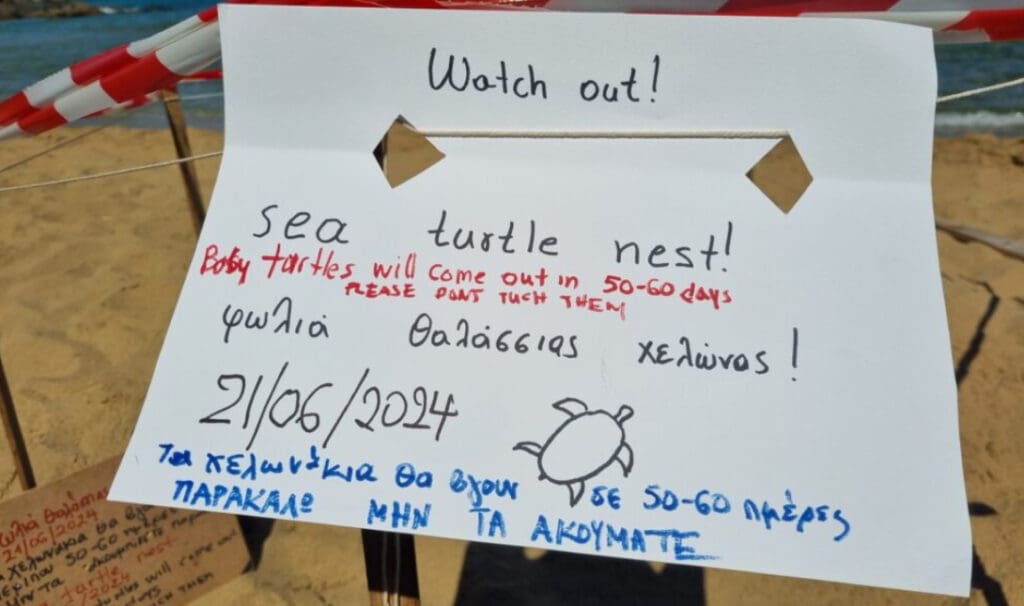 Watch out!
sea turtle nest!
Baby tartles will come out in 50-60 days
PLEASE DONT TUCH THEM
φωλιά θαλάσσιας χελώνας!
21/06/2024
Τα χελωνάκια θα βγουν σε 50-60 ημέρες
ΠΑΡΑΚΑΛΩ ΜΗΝ ΤΑ ΑΚΟΥΜΑΤΕ
21/06/2024
χελωνάκια θα
50-60
turtle nest
2024
will come out
THEM